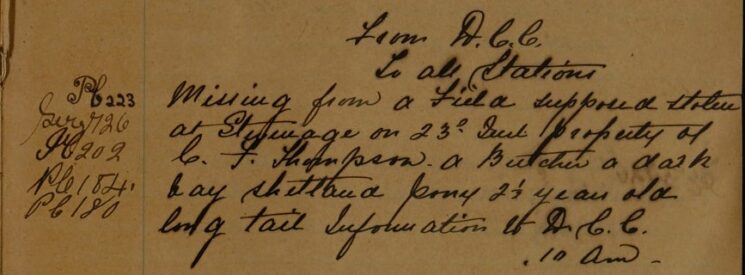 From D.C.C.
To all Stations
Pc 223
Sergt 26
Pc 202
Pc 184.
Pc 180
Missing from a Field supposed stolen
at on 23d Inst property of
C. F. Thompson. a Butcher a dark
bay shetland pony 2½ years old
long tail Information to D.C.C.
.10 Am.